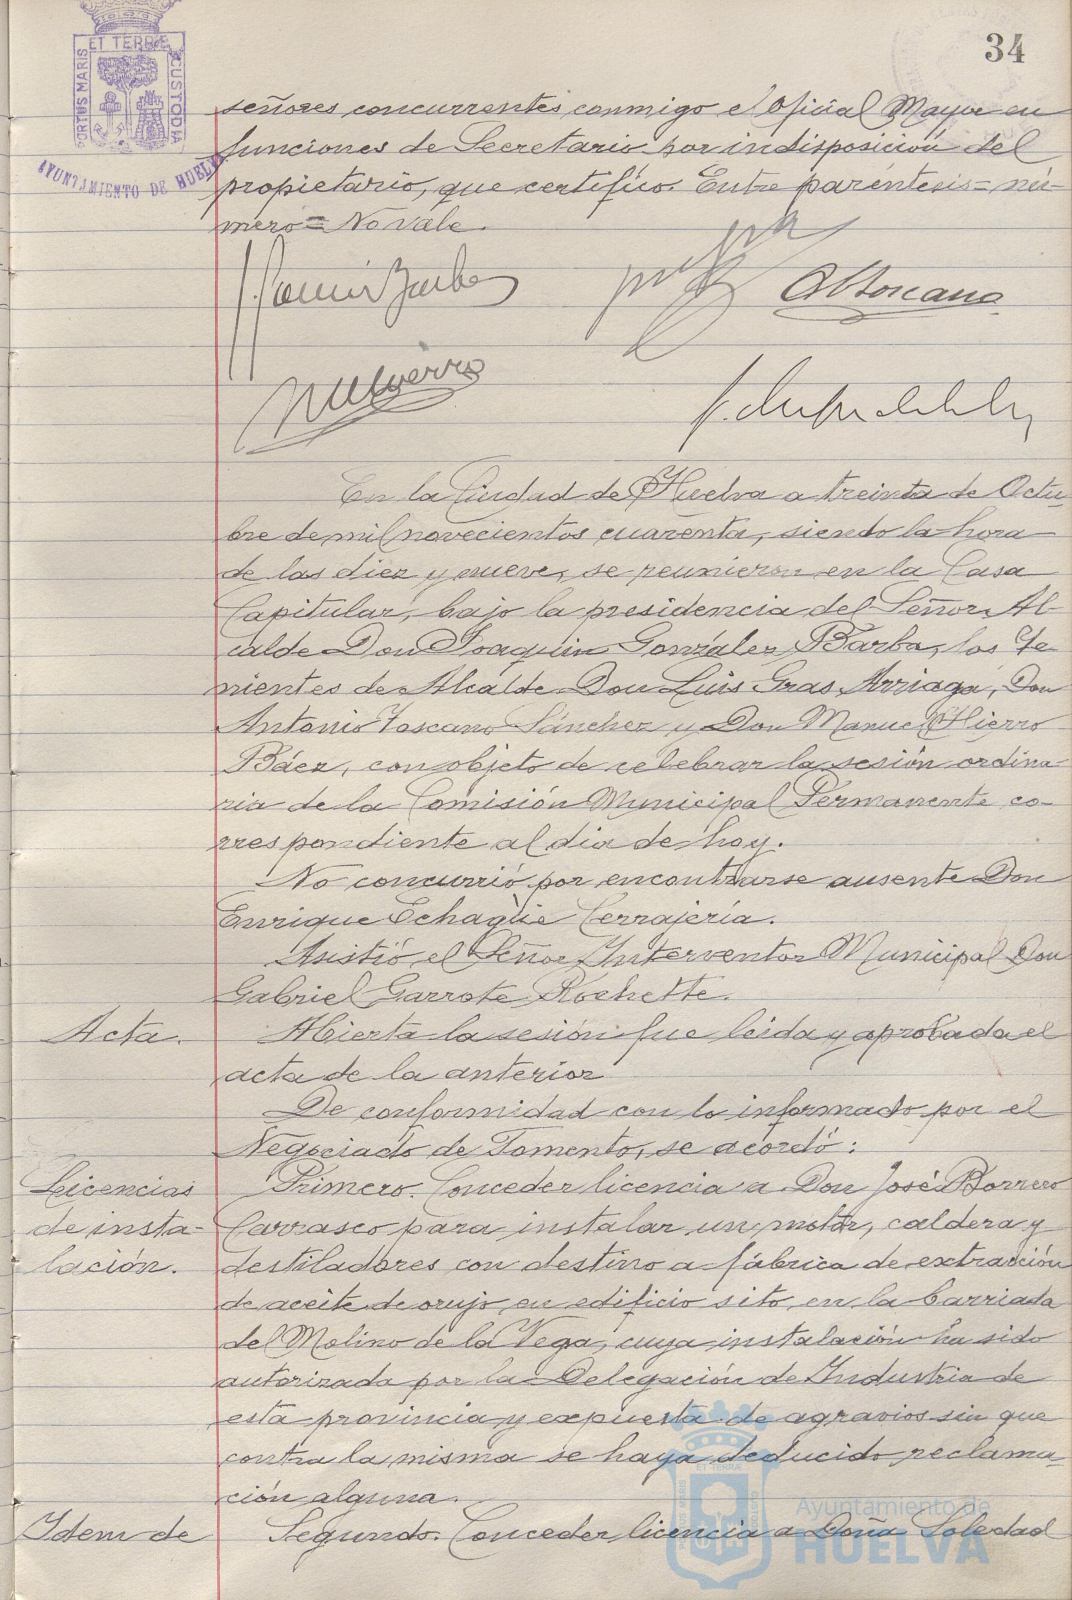 34
ET TERRÆ
PORTUS MARIS
CUSTODIA
AYUNTAMIENTO DE HUELVA
señores concurrentes conmigo el Oficial Mayor en
funciones de Secretario por indisposición del
propietario, que certifico. Entre paréntesis = nú-
mero = No vale.
A Toscano
M Hierro
En la Ciudad de Huelva a treinta de Octu-
bre de mil novecientos cuarenta, siendo la hora
de las diez y nueve, se reunieron en la Casa
Capitular, bajo la presidencia del Señor Al-
calde Don Joaquín González Barba, los Te-
nientes de Alcalde Don Luis Gras Arriaga, Don
Antonio Toscano Sánchez y Don Manuel Hierro
Báez, con objeto de celebrar la sesión ordina-
ria de la Comisión Municipal Permanente co-
rrespondiente al día de hoy.
No concurrió por encontrarse ausente Don
Enrique Echagüe Cerrajería.
Asistió el Señor Interventor Municipal Don
Gabriel Garrote Rochette.
Acta.
Abierta la sesión fue leida y aprobada el
acta de la anterior
De conformidad con lo informado por el
Negociado de Fomento, se acordó:
Licencias
de insta-
lación.
Primero. Conceder licencia a Don José Borrero
Carrasco para instalar un motor, caldera y
destiladores con destino a fábrica de extracción
de aceite de orujo, en edificio sito en la barriada
del Molino de la Vega, cuya instalación ha sido
autorizada por la Delegación de Industria de
esta provincia y expuesta de agravios sin que
contra la misma se haya deducido reclama-
ción alguna.
Idem de
Segundo. Conceder licencia a Doña Soledad
Ayuntamiento de
HUELVA